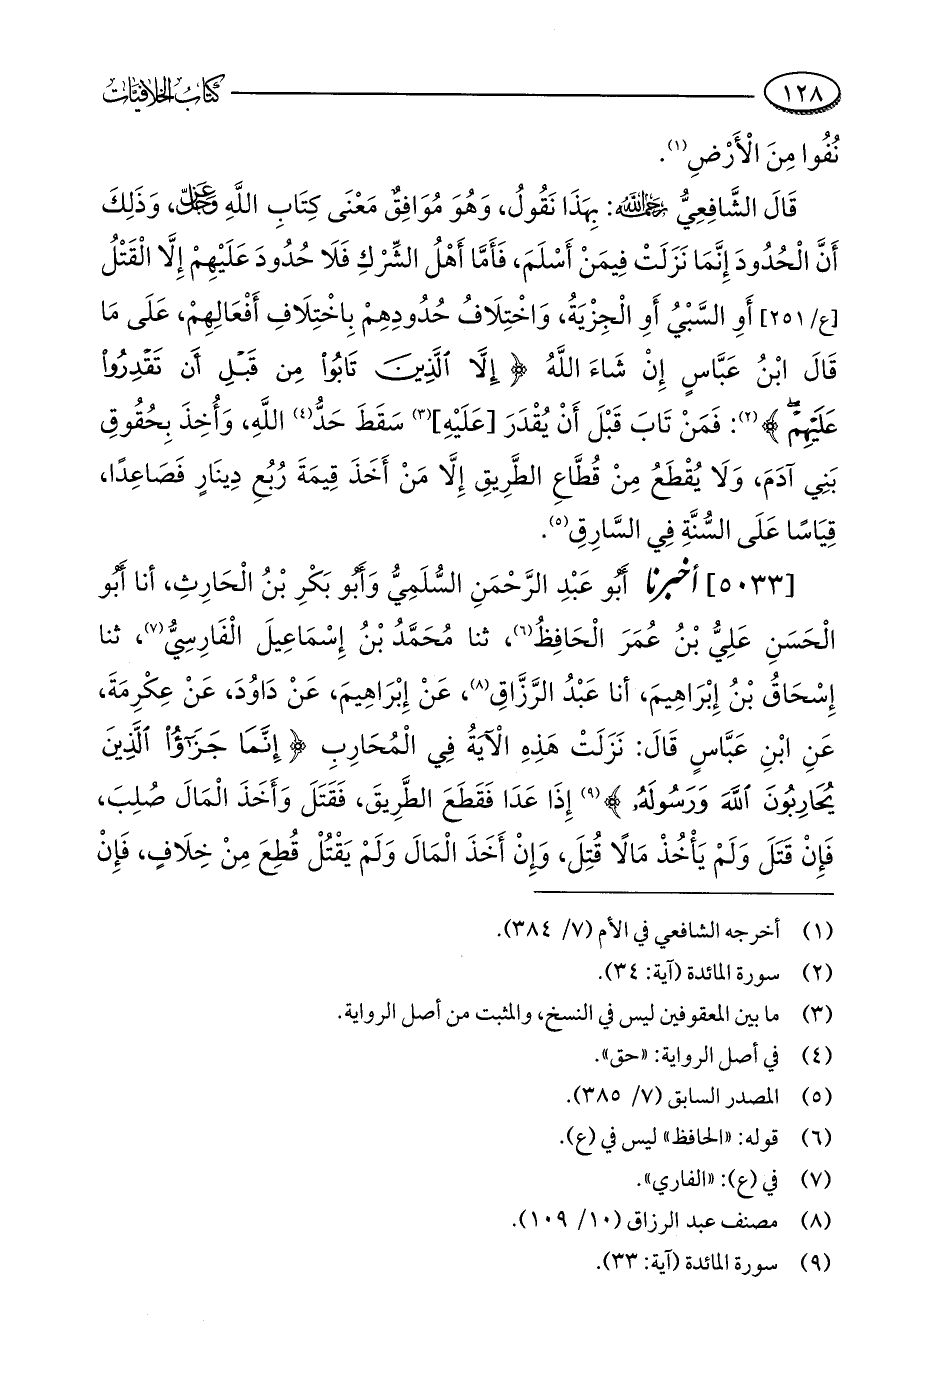 ١٢٨ كتاب الخلافيات
نُفُوا مِنَ الْأَرْضِ(١).
قَالَ الشَّافِعِيُّ رَحِمَهُ اللَّهُ: بِهَذَا نَقُولُ، وَهُوَ مُوَافِقٌ مَعْنَى كِتَابِ اللَّهِ عَزَّ وَجَلَّ، وَذَلِكَ
أَنَّ الْحُدُودَ إِنَّمَا نَزَلَتْ فِيمَنْ أَسْلَمَ، فَأَمَّا أَهْلُ الشِّرْكِ فَلَا حُدُودَ عَلَيْهِمْ إِلَّا الْقَتْلُ
[ع/ ٢٥١] أَوِ السَّبْيُ أَوِ الْجِزْيَةُ، وَاخْتِلَافُ حُدُودِهِمْ بِاخْتِلَافِ أَفْعَالِهِمْ، عَلَى مَا
قَالَ ابْنُ عَبَّاسٍ إِنْ شَاءَ اللَّهُ ﴿ إِلَّا ٱلَّذِينَ تَابُوا۟ مِن قَبْلِ أَن تَقْدِرُوا۟
عَلَيْهِمْ ۖ ﴾(٢): فَمَنْ تَابَ قَبْلَ أَنْ يُقْدَرَ [عَلَيْهِ](٣) سَقَطَ حَدُّ(٤) اللَّهِ، وَأُخِذَ بِحُقُوقِ
بَنِي آدَمَ، وَلَا يُقْطَعُ مِنْ قُطَّاعِ الطَّرِيقِ إِلَّا مَنْ أَخَذَ قِيمَةَ رُبُعِ دِينَارٍ فَصَاعِدًا،
قِيَاسًا عَلَى السُّنَّةِ فِي السَّارِقِ(٥).
[٥٠٣٣] أخبرنا أَبُو عَبْدِ الرَّحْمَنِ السُّلَمِيُّ وَأَبُو بَكْرِ بْنُ الْحَارِثِ، أنا أَبُو
الْحَسَنِ عَلِيُّ بْنُ عُمَرَ الْحَافِظُ(٦)، ثنا مُحَمَّدُ بْنُ إِسْمَاعِيلَ الْفَارِسِيُّ(٧)، ثنا
إِسْحَاقُ بْنُ إِبْرَاهِيمَ، أنا عَبْدُ الرَّزَّاقِ(٨)، عَنْ إِبْرَاهِيمَ، عَنْ دَاوُدَ، عَنْ عِكْرِمَةَ،
عَنِ ابْنِ عَبَّاسٍ قَالَ: نَزَلَتْ هَذِهِ الْآيَةُ فِي الْمُحَارِبِ ﴿ إِنَّمَا جَزَٰٓؤُا۟ ٱلَّذِينَ
يُحَارِبُونَ ٱللَّهَ وَرَسُولَهُۥ ﴾(٩) إِذَا عَدَا فَقَطَعَ الطَّرِيقَ، فَقَتَلَ وَأَخَذَ الْمَالَ صُلِبَ،
فَإِنْ قَتَلَ وَلَمْ يَأْخُذْ مَالًا قُتِلَ، وَإِنْ أَخَذَ الْمَالَ وَلَمْ يَقْتُلْ قُطِعَ مِنْ خِلَافٍ، فَإِنْ
(١) أخرجه الشافعي في الأم (٧/ ٣٨٤).
(٢) سورة المائدة (آية: ٣٤).
(٣) ما بين المعقوفين ليس في النسخ، والمثبت من أصل الرواية.
(٤) في أصل الرواية: «حق».
(٥) المصدر السابق (٧/ ٣٨٥).
(٦) قوله: «الحافظ» ليس في (ع).
(٧) في (ع): «الفاري».
(٨) مصنف عبد الرزاق (١٠/ ١٠٩).
(٩) سورة المائدة (آية: ٣٣).